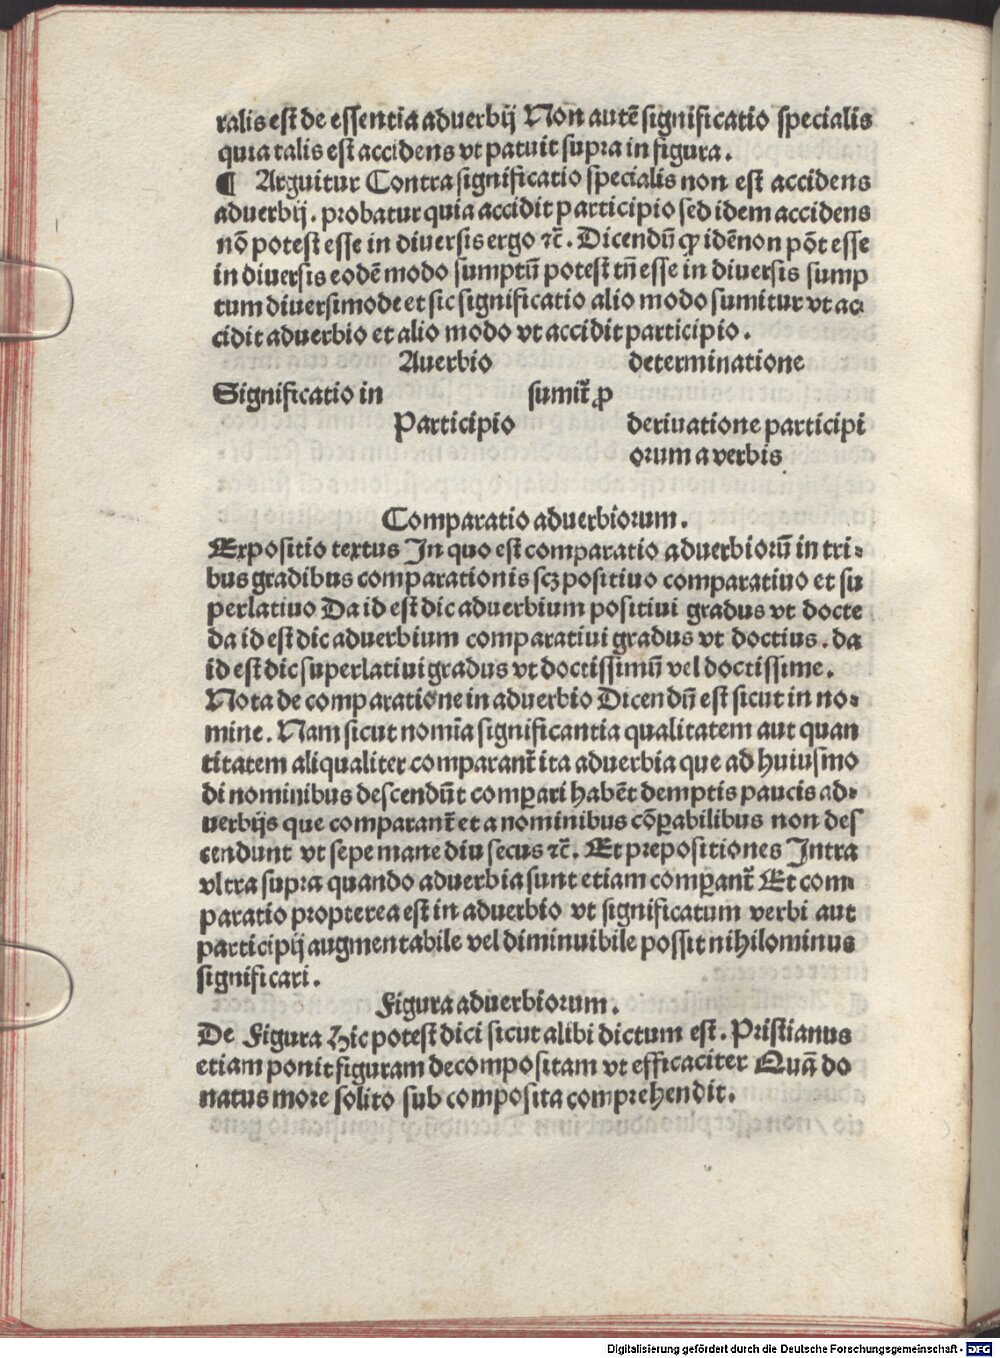 ralis est de essentia aduerbij Non autē significatio specialis
quia talis est accidens vt patuit supra in figura.
¶ Arguitur Contra significatio specialis non est accidens
aduerbij. probatur quia accidit participio sed idem accidens
nō potest esse in diuersis ergo ⁊c̄. Dicendū ꝙ idēnon pōt esse
in diuersis eodē modo sumptū potest tñ esse in diuersis sump
tum diuersimode et sic significatio alio modo sumitur vt ac⸗
cidit aduerbio et alio modo vt accidit participio.
Auerbio determinatione
Significatio in sumit̄ ꝓ
Participio deriuatione participi
orum a verbis
Comparatio aduerbiorum.
Expositio textus In quo est comparatio aduerbiorū in tri⸗
bus gradibus comparationis scꝫ positiuo comparatiuo et su
perlatiuo Da id est dic aduerbium positiui gradus vt docte
da id est dic aduerbium comparatiui gradus vt doctius. da
id est dic superlatiui gradus vt doctissimū vel doctissime.
Nota de comparatione in aduerbio Dicendū est sicut in no⸗
mine. Nam sicut nomīa significantia qualitatem aut quan
titatem aliqualiter comparant̄ ita aduerbia que ad huiusmo
di nominibus descendūt comꝑari habēt demptis paucis ad⸗
uerbijs que comparant̄ et a nominibus cōꝑabilibus non des
cendunt vt sepe mane diu secus ⁊c̄. Et prepositiones Intra
vltra supra quando aduerbia sunt etiam comꝑant̄ Et com⸗
paratio propterea est in aduerbio vt significatum verbi aut
participij augmentabile vel diminuibile possit nihilominus
significari.
Figura aduerbiorum.
De Figura Hic potest dici sicut alibi dictum est. Pristianus
etiam ponit figuram decompositam vt efficaciter Quā do
natus more solito sub composita comprehendit.
Digitalisierung gefördert durch die Deutsche Forschungsgemeinschaft - DFG